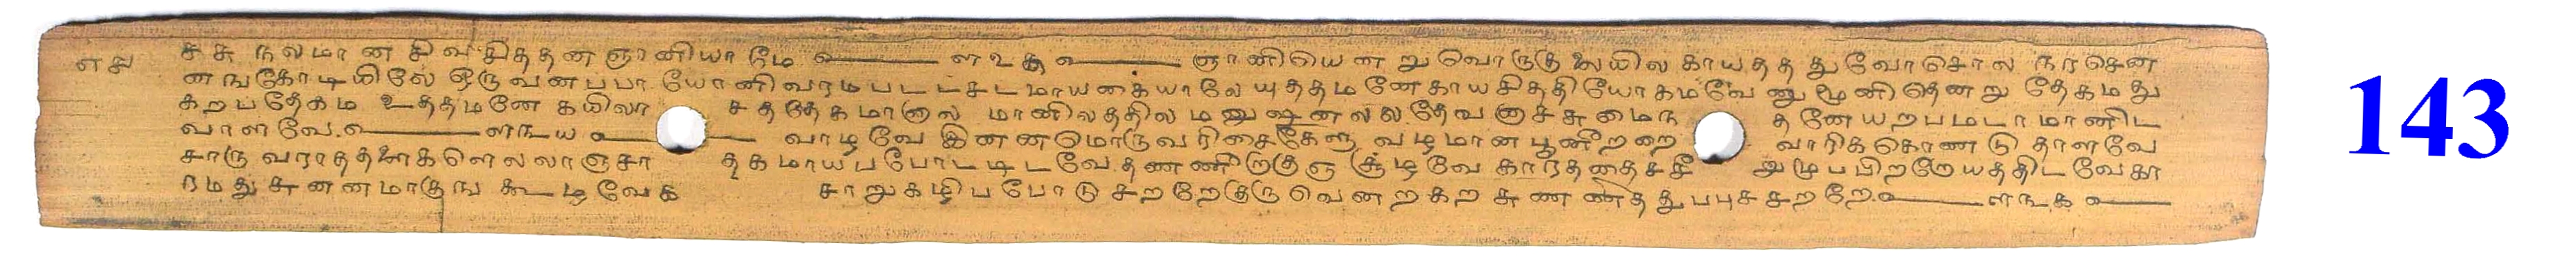 எசு சுசு நலமான சிவசித்தன ஞானியாமே ளஉகூ ஞானியென றுவொருகு கையில காயதத துவோசொல நரசென
னஙகோடியிலே ஒருவனபபா யோனிவரமபடடசடமாயகையாலே யுததமனே காயசித்தியோகமவே னுமூனிதெனறு தேகமது
கறபதேகம உததமனே கயிலா சததேகமானால மானிலத்தில மனுஷனலல தேவனாசசுமைந தனேயறபமடாமானிட
வாளவே ளநய வாழவே இனனமொருவரிசைகேளு வழமான பூனீறறை வாரிககொணடு தாளவே
சாரு வராததனககெளெலலாஞசா தகமாயபபோடடிடவே தணணிறகுள சூழவே காரததைசசீ அமுபபிறறேயததிடவேகா
ரமதுசுனனமாகுங கூடிவேக சாறுகழிபபோடு சறறேகுரு வெனறகற சுணணித துபபுசசறறே ளநக
143